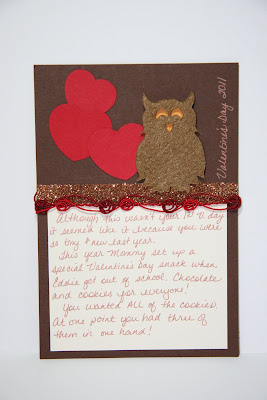 Valentine's Day 2011
Although this wasn't your 1st V. day
it seemed like it because you were
so tiny & new last year.
This year Mommy set up a
special Valentine's Day snack when
Eddie got out of school. Chocolate
and cookies for everyone!
You wanted ALL of the cookies.
At one point you had three of
them in one hand!